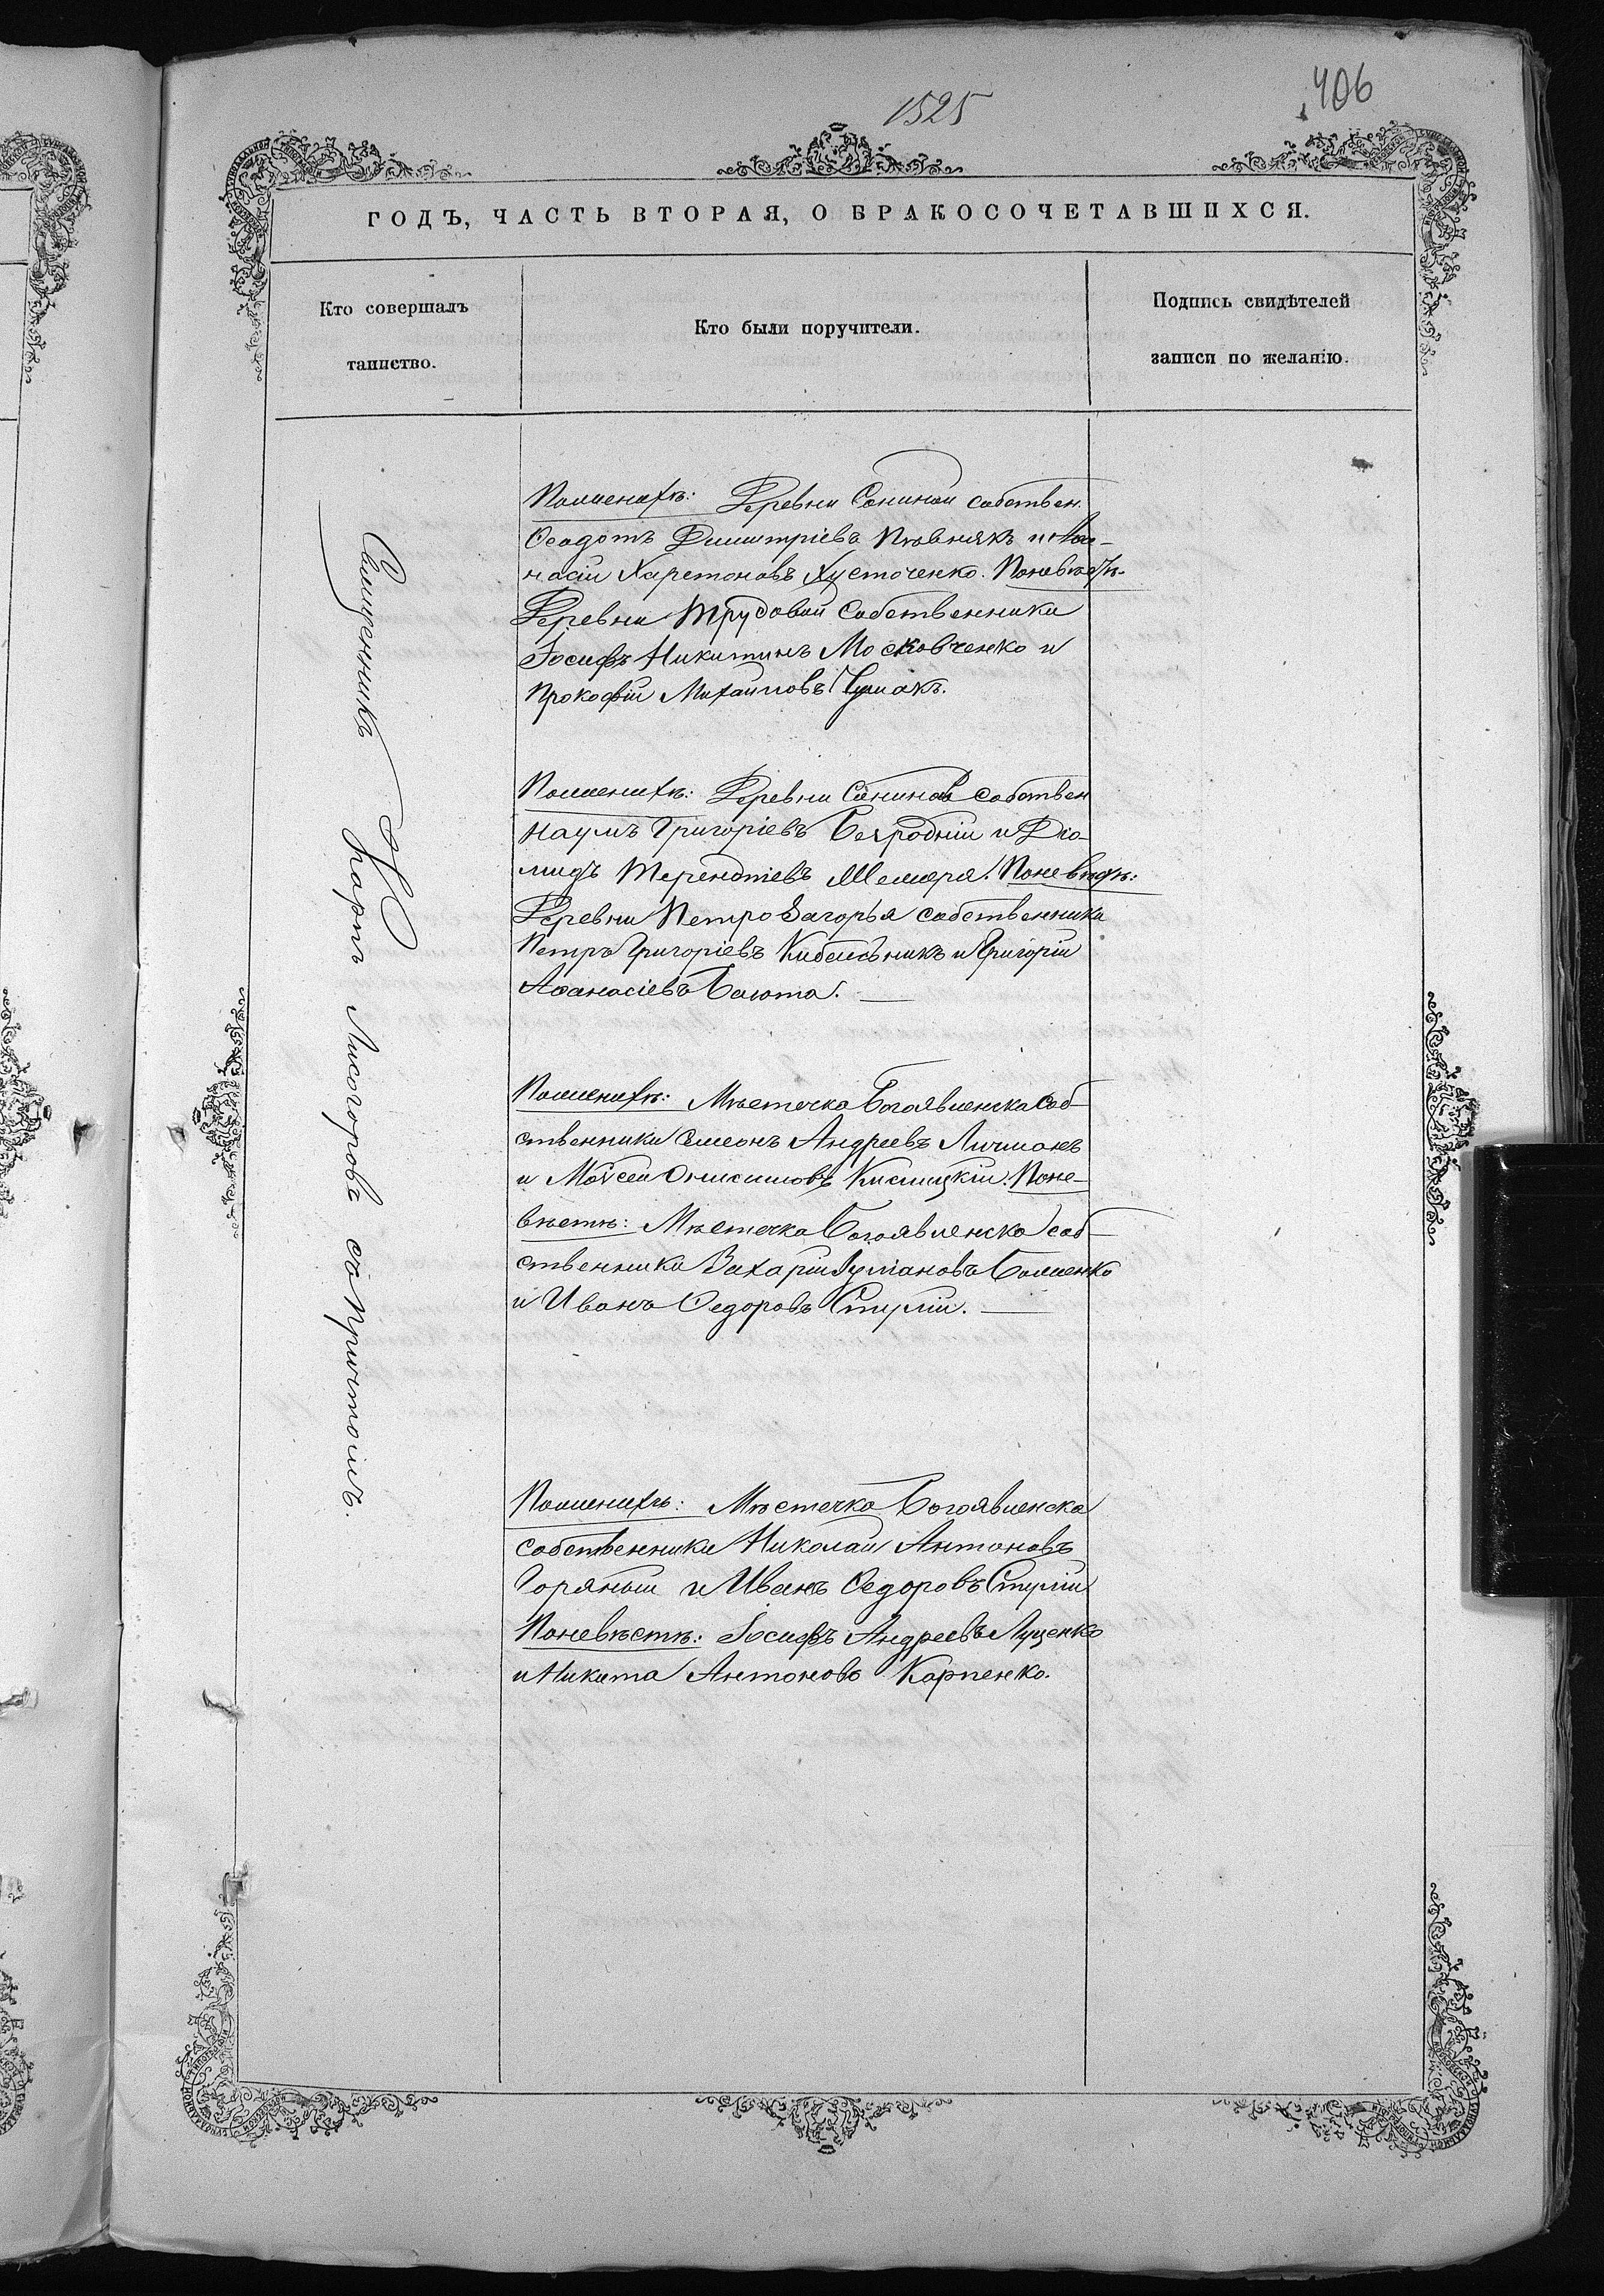 1525
406
ГОДЪ, ЧАСТЬ ВТОРАЯ, О БРАКОСОЧЕТАВШИХСЯ.
Кто совершалъ
таинство.
Кто были поручители.
Подпись свидѣтелей
записи по желанію.
Священникъ Карпъ Лисогоровъ съ причтомъ.
По женихѣ: Деревни Сониной собствен.
Ѳеодотъ Димитріевъ Пѣвнякъ и Аѳа-
насій Харетоновъ Хусточенко. По невѣстѣ.
Деревни Трудовой собственники
Іосифъ Никитинъ Московченко и
Прокофій Михайловъ Чумакъ.
По женихѣ: Деревни Сониной собствен
Наумъ Григоріевъ Безродній и Діо-
мидъ Терентіевъ Шемяра. По невѣстѣ:
Деревни Петро Загорья собственники
Петръ Григоріевъ и Григорій
Аѳанасіевъ Баюта.
По женихѣ: Мѣстечка Богоявленска соб-
ственники Симеонъ Андреевъ Личманъ
и Моѵсей Онисимовъ Кислицкій. По не-
вѣстѣ: Мѣстечка Богоявленска соб-
ственники Захарій Баженко
и Иванъ Ѳедоровъ
По женихѣ: Мѣстечка Богоявленска
собственники Николай Антоновъ
Горяный и Иванъ Ѳедоровъ
По невѣстѣ: Іосифъ Андреевъ Луценко
и Никита Антоновъ Карпенко.